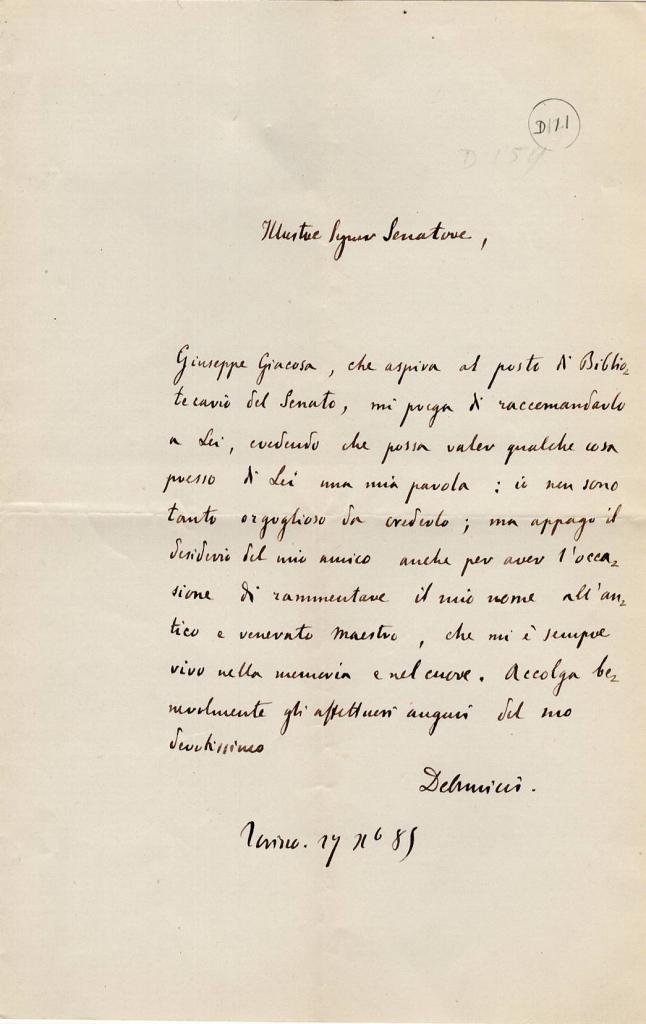 D171
D 154
Illustre Signor Senatore,
Giuseppe Giacosa, che aspira al posto di Biblio-
tecario del Senato, mi prega di raccomandarlo
a Lei, credendo che possa valer qualche cosa
presso di Lei una mia parola: io non sono
tanto orgoglioso da crederlo; ma appago il
desiderio del mio amico anche per aver l'occa-
sione di rammentare il mio nome all'an-
tico e venerato maestro, che mi è sempre
vivo nella memoria e nel cuore. Accolga be-
nevolmente gli affettuosi auguri del suo
devotissimo
DeAmicis.
Torino. 27 85